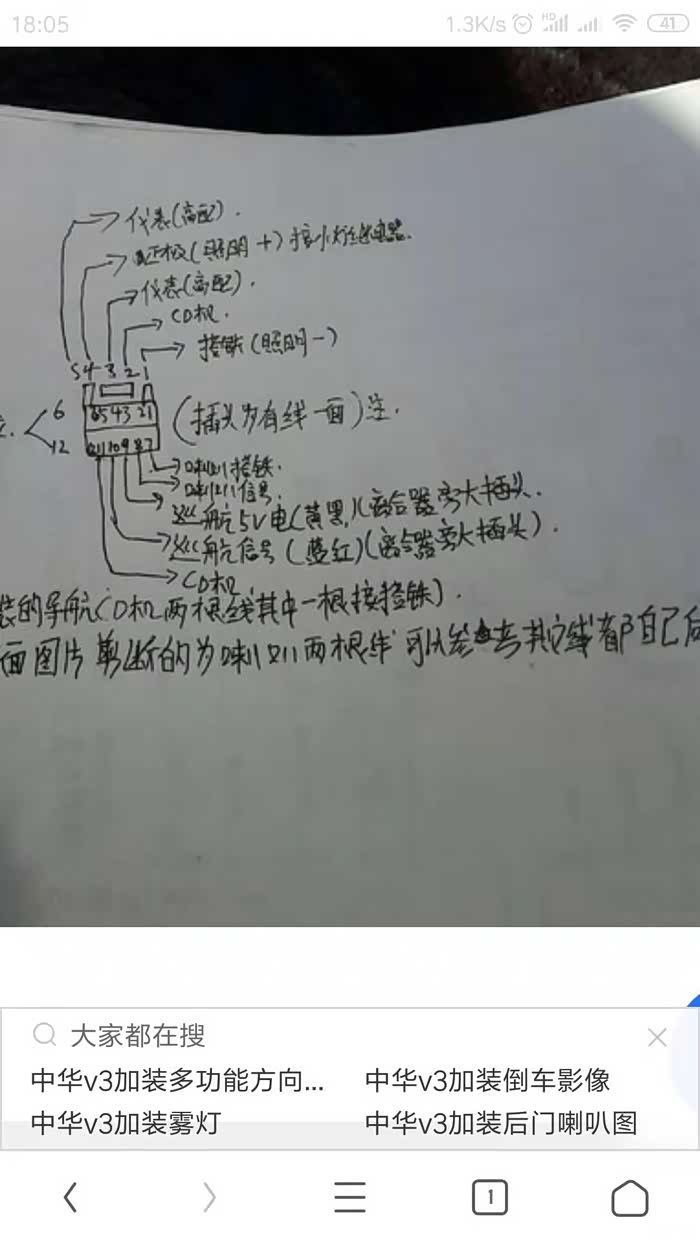 18:05
1.3K/s
HD
41
仪表(高配).
正极(照明+)接小灯继电器.
仪表(高配).
CD机.
搭铁(照明-)
5 4 3 2 1
6
6 5 4 3 2 1
(插头为有线一面)注.
12
12 11 10 9 8 7
喇叭搭铁.
喇叭信号.
巡航5V电(黄黑)(离合器旁大插头.
巡航信号(蓝红)(离合器旁大插头).
CD机
装的导航CD机两根线其中一根接搭铁).
面图片剪断的为喇叭两根线 可以参考其它线都自己
大家都在搜
中华v3加装多功能方向...
中华v3加装倒车影像
中华v3加装雾灯
中华v3加装后门喇叭图
1